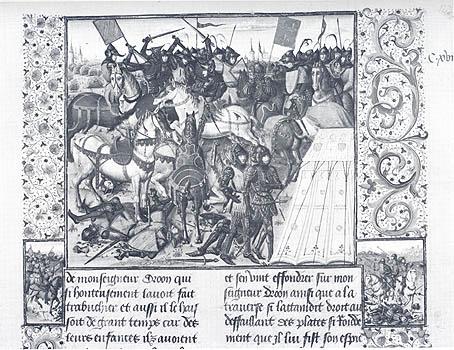 de monseigneur Droon qui
si honteusement lauoit fait
trabuchier et aussi il le hais
soit de grant temps car des
leurs enfances ilz auoient
et sen vint effondrer sur mon
seigneur Droon ainsi que a la
trauerse si lattaindit droit au
deffaillant des plattes si roide
ment que il luy fist son espie